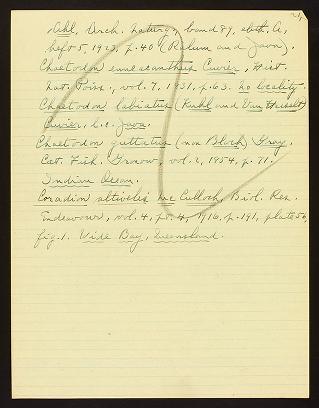 Dahl, Arch. Naturg., band 89, abth. A,
heft 5, 1923, p. 40 (Ralum and Java).
Chaetodon enneacanthus Cuvier, Hist.
Nat. Poiss., vol. 7, 1831, p. 63. no locality.
Chaetodon labiatus (Kuhl and Van Hasselt)
Cuvier, l.c. Java.
Chaetodon guttatus (non Bloch) Gray,
Cat. Fish. Gronow, vol. 1, 1854, p. 71.
Indian Ocean.
Coradion altivelis Mc Culloch, Biol. Res.
Endeavour, vol. 4, pt. 4, 1916, p. 191, plate 56,
fig. 1. Wide Bay, Queensland.